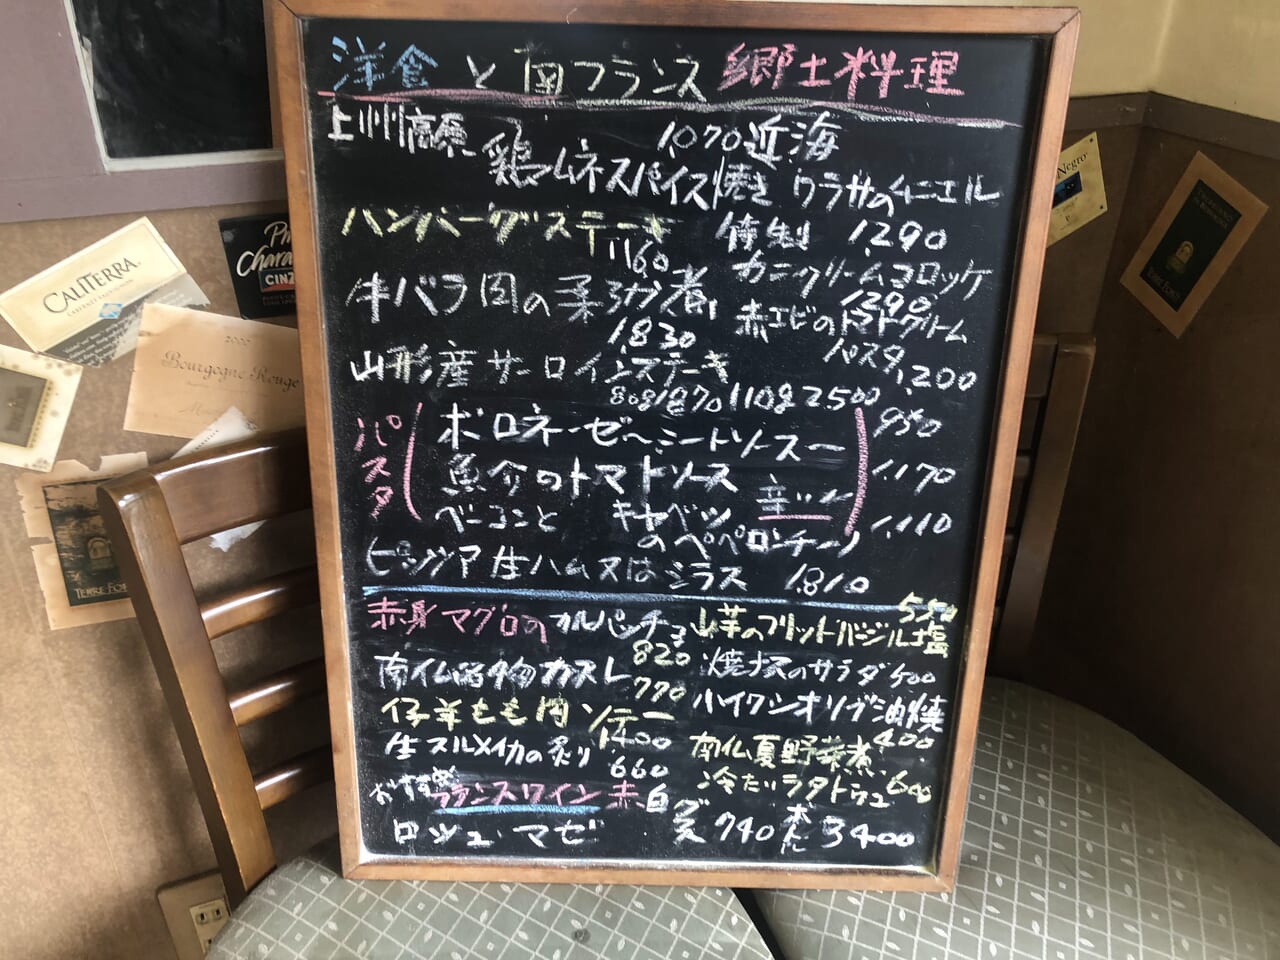 洋食と南フランス郷土料理
上州高原 鶏ムネスパイス焼き 1070
近海 ワラサのムニエル
特製 1,290
ハンバーグステーキ
1160
カニクリームコロッケ
1290
牛バラ肉の柔らか煮
1,830
赤エビのトマトクリーム
パスタ 1,200
山形産サーロインステーキ
80g 1870 110g 2500
パスタ
ボロネーゼ〜ミートソースー 950
魚介のトマトソース 辛いソー 1,170
ベーコンと キャベツ
のペペロンチーノ 1,110
ピッツア 生ハム又はシラス 1.810
赤身マグロのカルパッチョ
820
山芋のフリットバジル塩
550
南仏名物カスレ
770
焼ナスのサラダ 500
仔羊もも肉ソテー
1400
ハイワシオリーブ油焼
400
生スルメイカの炙り
660
南仏夏野菜煮
冷たいラタトゥユ 600
おすすめ
フランスワイン 赤 白
ロシュ・マゼ
グラス 740 ボトル 3400
CALITERRA
CINZ
2000
Bourgogne Rouge
Negro
TERRE FORT